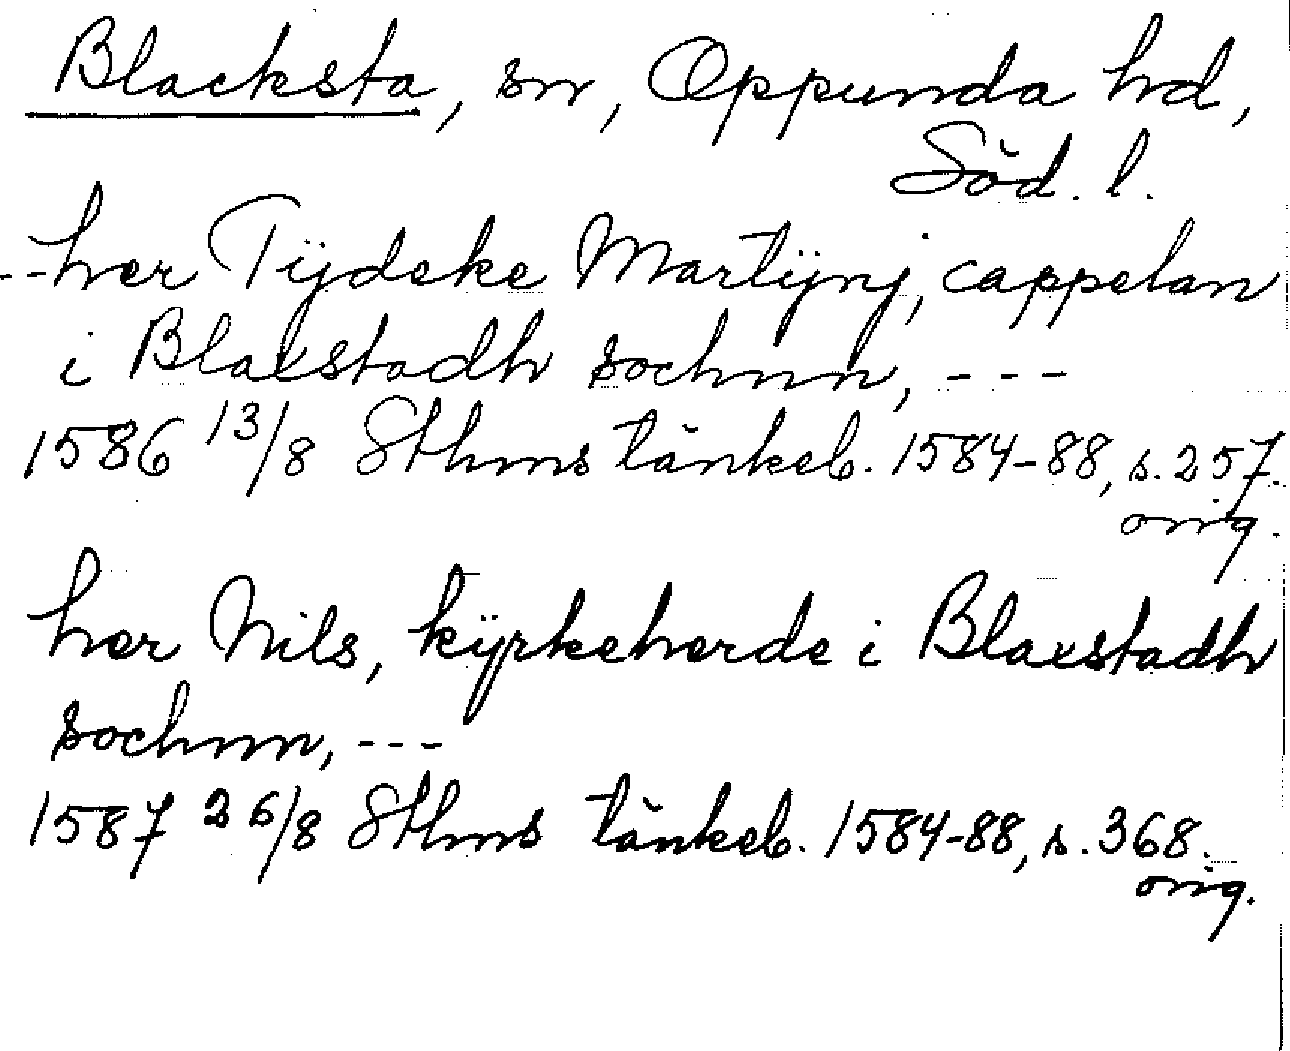 Blacksta, sn, Oppunda hd,
Söd. l.
--her Tÿdeke Martÿnj, cappelan
i Blaxstadh sochnn, ---
1586 13/8 Sthms tänkeb. 1584-88, s. 257.
orig.
her Nils, kÿrkeherde i Blaxstadh
sochnn, ---
1587 26/8 Sthms tänkeb. 1584-88, s. 368.
orig.